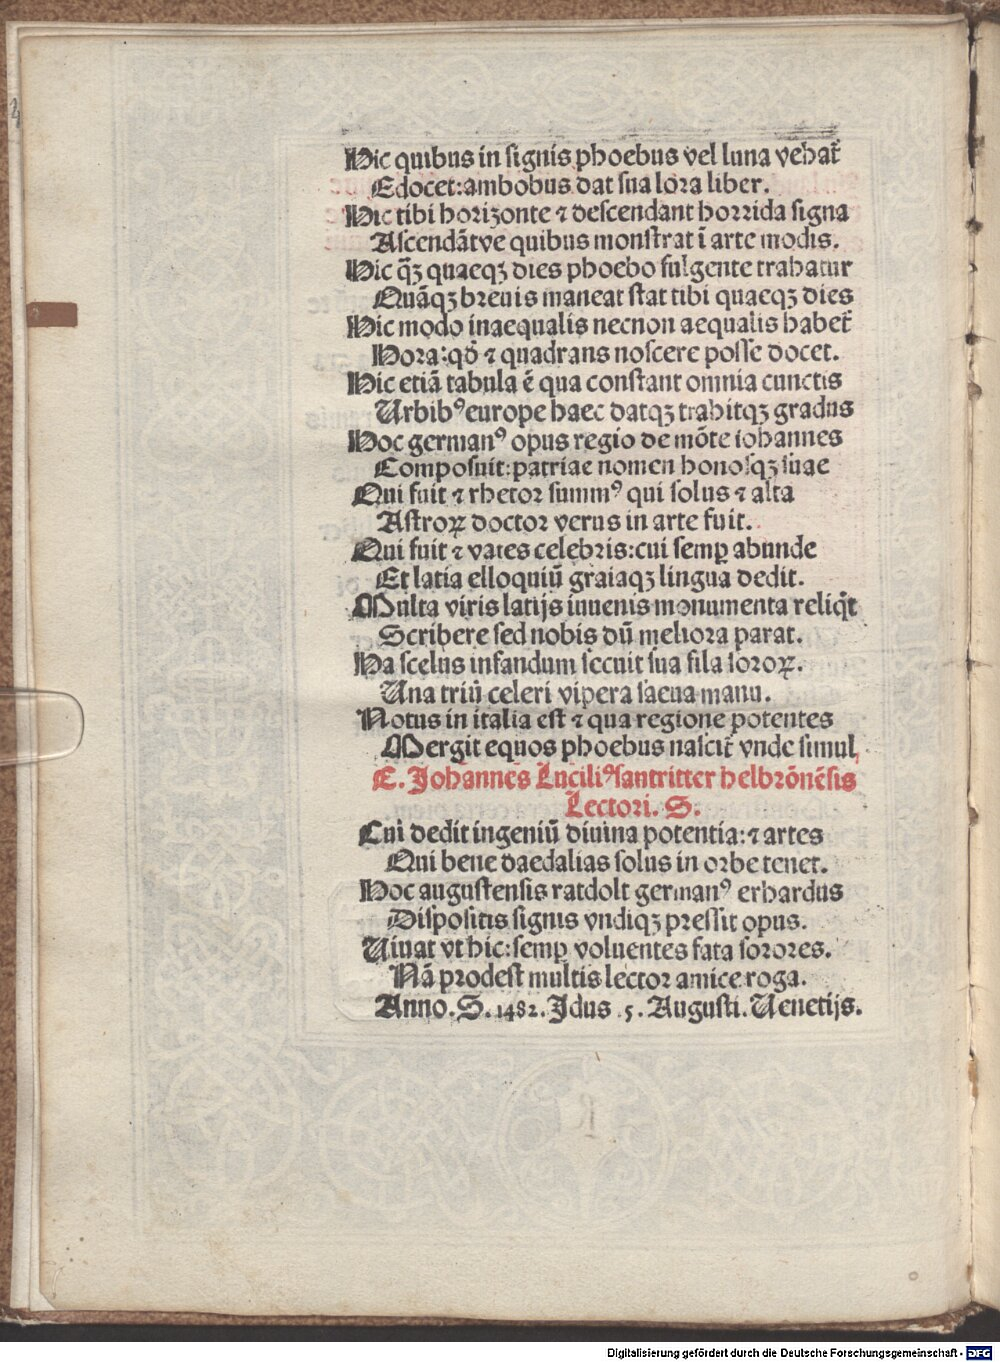 Hic quibus in signis phoebus vel luna vehat̃
Edocet: ambobus dat sua lora liber.
Hic tibi horizonte ⁊ descendant horrida signa
Ascendãtve quibus monstrat ĩ arte modis.
Hic q̃ꝫ quaeqꝫ dies phoebo fulgente trahatur
Quãqꝫ breuis maneat stat tibi quaeqꝫ dies
Hic modo inaequalis necnon aequalis habet̃
Hora: qđ ⁊ quadrans noscere posse docet.
Hic etiã tabula ẽ qua constant omnia cunctis
Urbibꝰ europe haec datqꝫ trahitqꝫ gradus
Hoc germanꝰ opus regio de mõte iohannes
Composuit: patriae nomen honosqꝫ suae
Qui fuit ⁊ rhetor summꝰ qui solus ⁊ alta
Astroꝝ doctor verus in arte fuit.
Qui fuit ⁊ vates celebris: cui semꝑ abunde
Et latia elloquiũ graiaqꝫ lingua dedit.
Multa viris latijs iuuenis monumenta reliq̃t
Scribere sed nobis dũ meliora parat.
Ha scelus infandum secuit sua fila soroꝝ.
Una triũ celeri vipera saeua manu.
Notus in italia est ⁊ qua regione potentes
Mergit equos phoebus nascit̃ vnde simul,
C. Johannes Luciliꝰ santritter helbrõnẽsis
Lectori. S.
Cui dedit ingeniũ diuina potentia: ⁊ artes
Qui bene daedalias solus in orbe tenet.
Hoc augustensis ratdolt germanꝰ erhardus
Dispositis signis vndiqꝫ pressit opus.
Uiuat vt hic: semꝑ voluentes fata sorores.
Nã prodest multis lector amice roga.
Anno. S. 1482. Jdus .5. Augusti. Uenetijs.
Digitalisierung gefördert durch die Deutsche Forschungsgemeinschaft - DFG